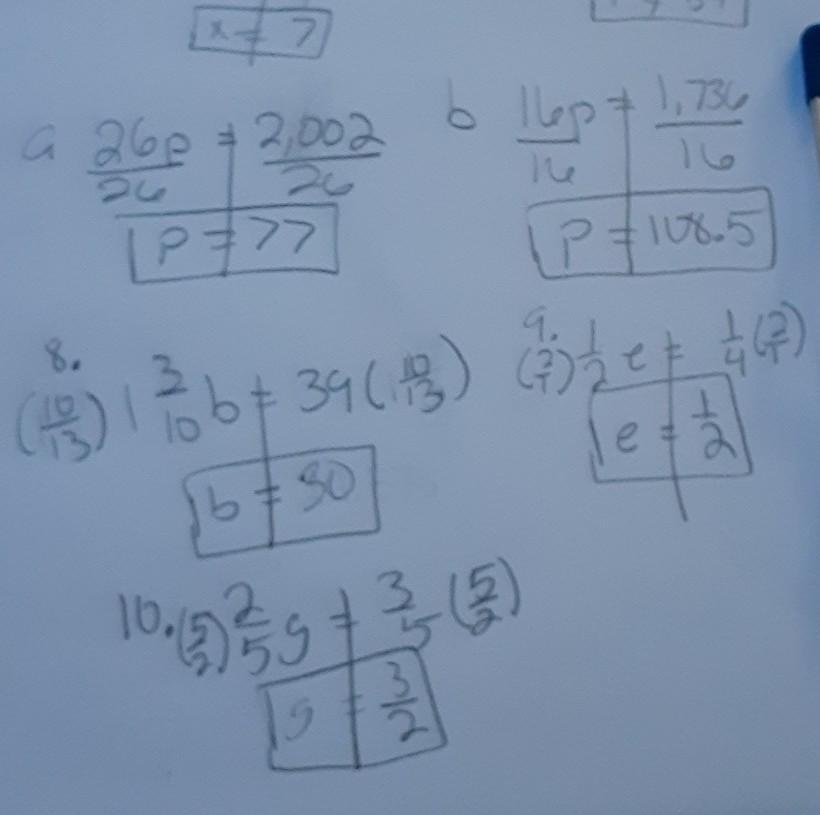 x = 7
a 26p/26 = 2,002/26
p = 77
b 16p/16 = 1,736/16
p = 108.5
8.
(10/13) 1 3/10 b = 39 (10/13)
b = 30
9.
(2/1) 1/2 e = 1/4 (2/1)
e = 1/2
10. (5/2) 2/5 g = 3/5 (5/2)
g = 3/2